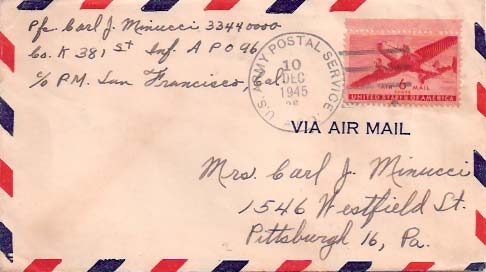 Pfc. Carl J. Minucci 33440000
Co. K 381st Inf. A P O 96
c/o P.M. San Francisco, Cal.
U.S. ARMY POSTAL SERVICE
10
DEC
1945
6
CENTS
AIR MAIL
UNITED STATES OF AMERICA
VIA AIR MAIL
Mrs. Carl J. Minucci
1546 Westfield St.
Pittsburgh 16, Pa.